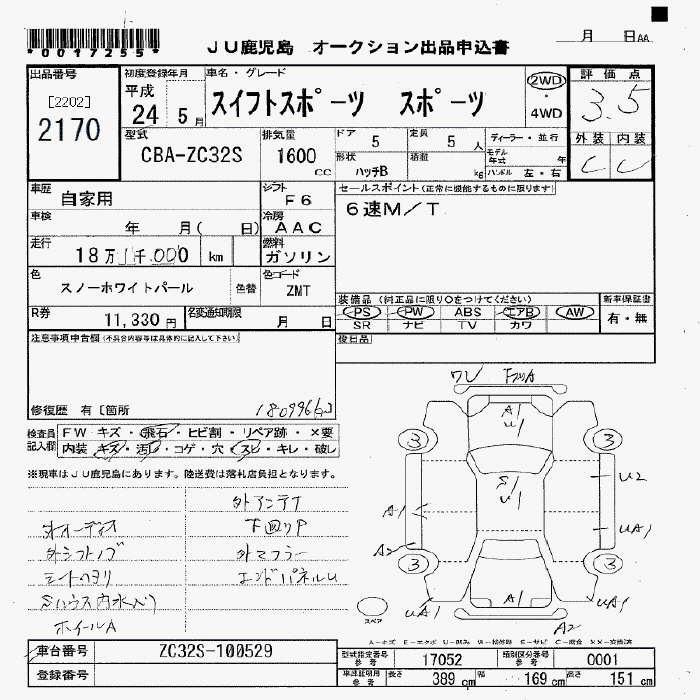 *00172S5*
JU鹿児島 オークション出品申込書
月 日 AA
出品番号
[2202]
2170
初度登録年月
平成
24 5月
車名・グレード
スイフトスポーツ スポーツ
2WD
・
4WD
評価点
3.5
外装 内装
C C
型式
CBA-ZC32S
排気量
1600
CC
ドア
5
定員
5 人
形状
ハッチB
積載
kg
ディーラー・並行
モデル年式 年
ハンドル 左・右
車歴
自家用
シフト
F6
車検
年 月( 日)
冷房
AAC
走行
18万 1千,000 km
燃料
ガソリン
色
スノーホワイトパール
色替
色コード
ZMT
R券
11,330 円
名変通知期限
月 日
セールスポイント(正常に機能するものに限ります)
6速M/T
装備品(純正品に限り○をつけてください)
PS PW ABS エアB AW
SR ナビ TV カワ
新車保証書
有・無
後日品
注意事項申告欄(不具合内容等は具体的に記入して下さい)
修復歴 有〔箇所
180996
検査員記入欄
FW キズ・飛石・ヒビ割・リペア跡・×要
内装 キズ・汚レ・コゲ・穴・スレ・キレ・破レ
※現車はJU鹿児島にあります。陸送費は落札店負担となります。
外アンテナ
外オーディオ
下回りP
外シフトノブ
外マフラー
シートヘタリ
エンドパネルU
Sハウス内水入り
ホイールA
ワレ
A1
U1
3
3
U2
U1
A1
UA1
A2
3
3
A1
UA1
UA1
A2
スペア
車台番号
ZC32S-100529
登録番号
型式指定番号 参考
17052
類別区分番号 参考
0001
車検証記載 参考
長さ
389 cm
幅
169 cm
高さ
151 cm